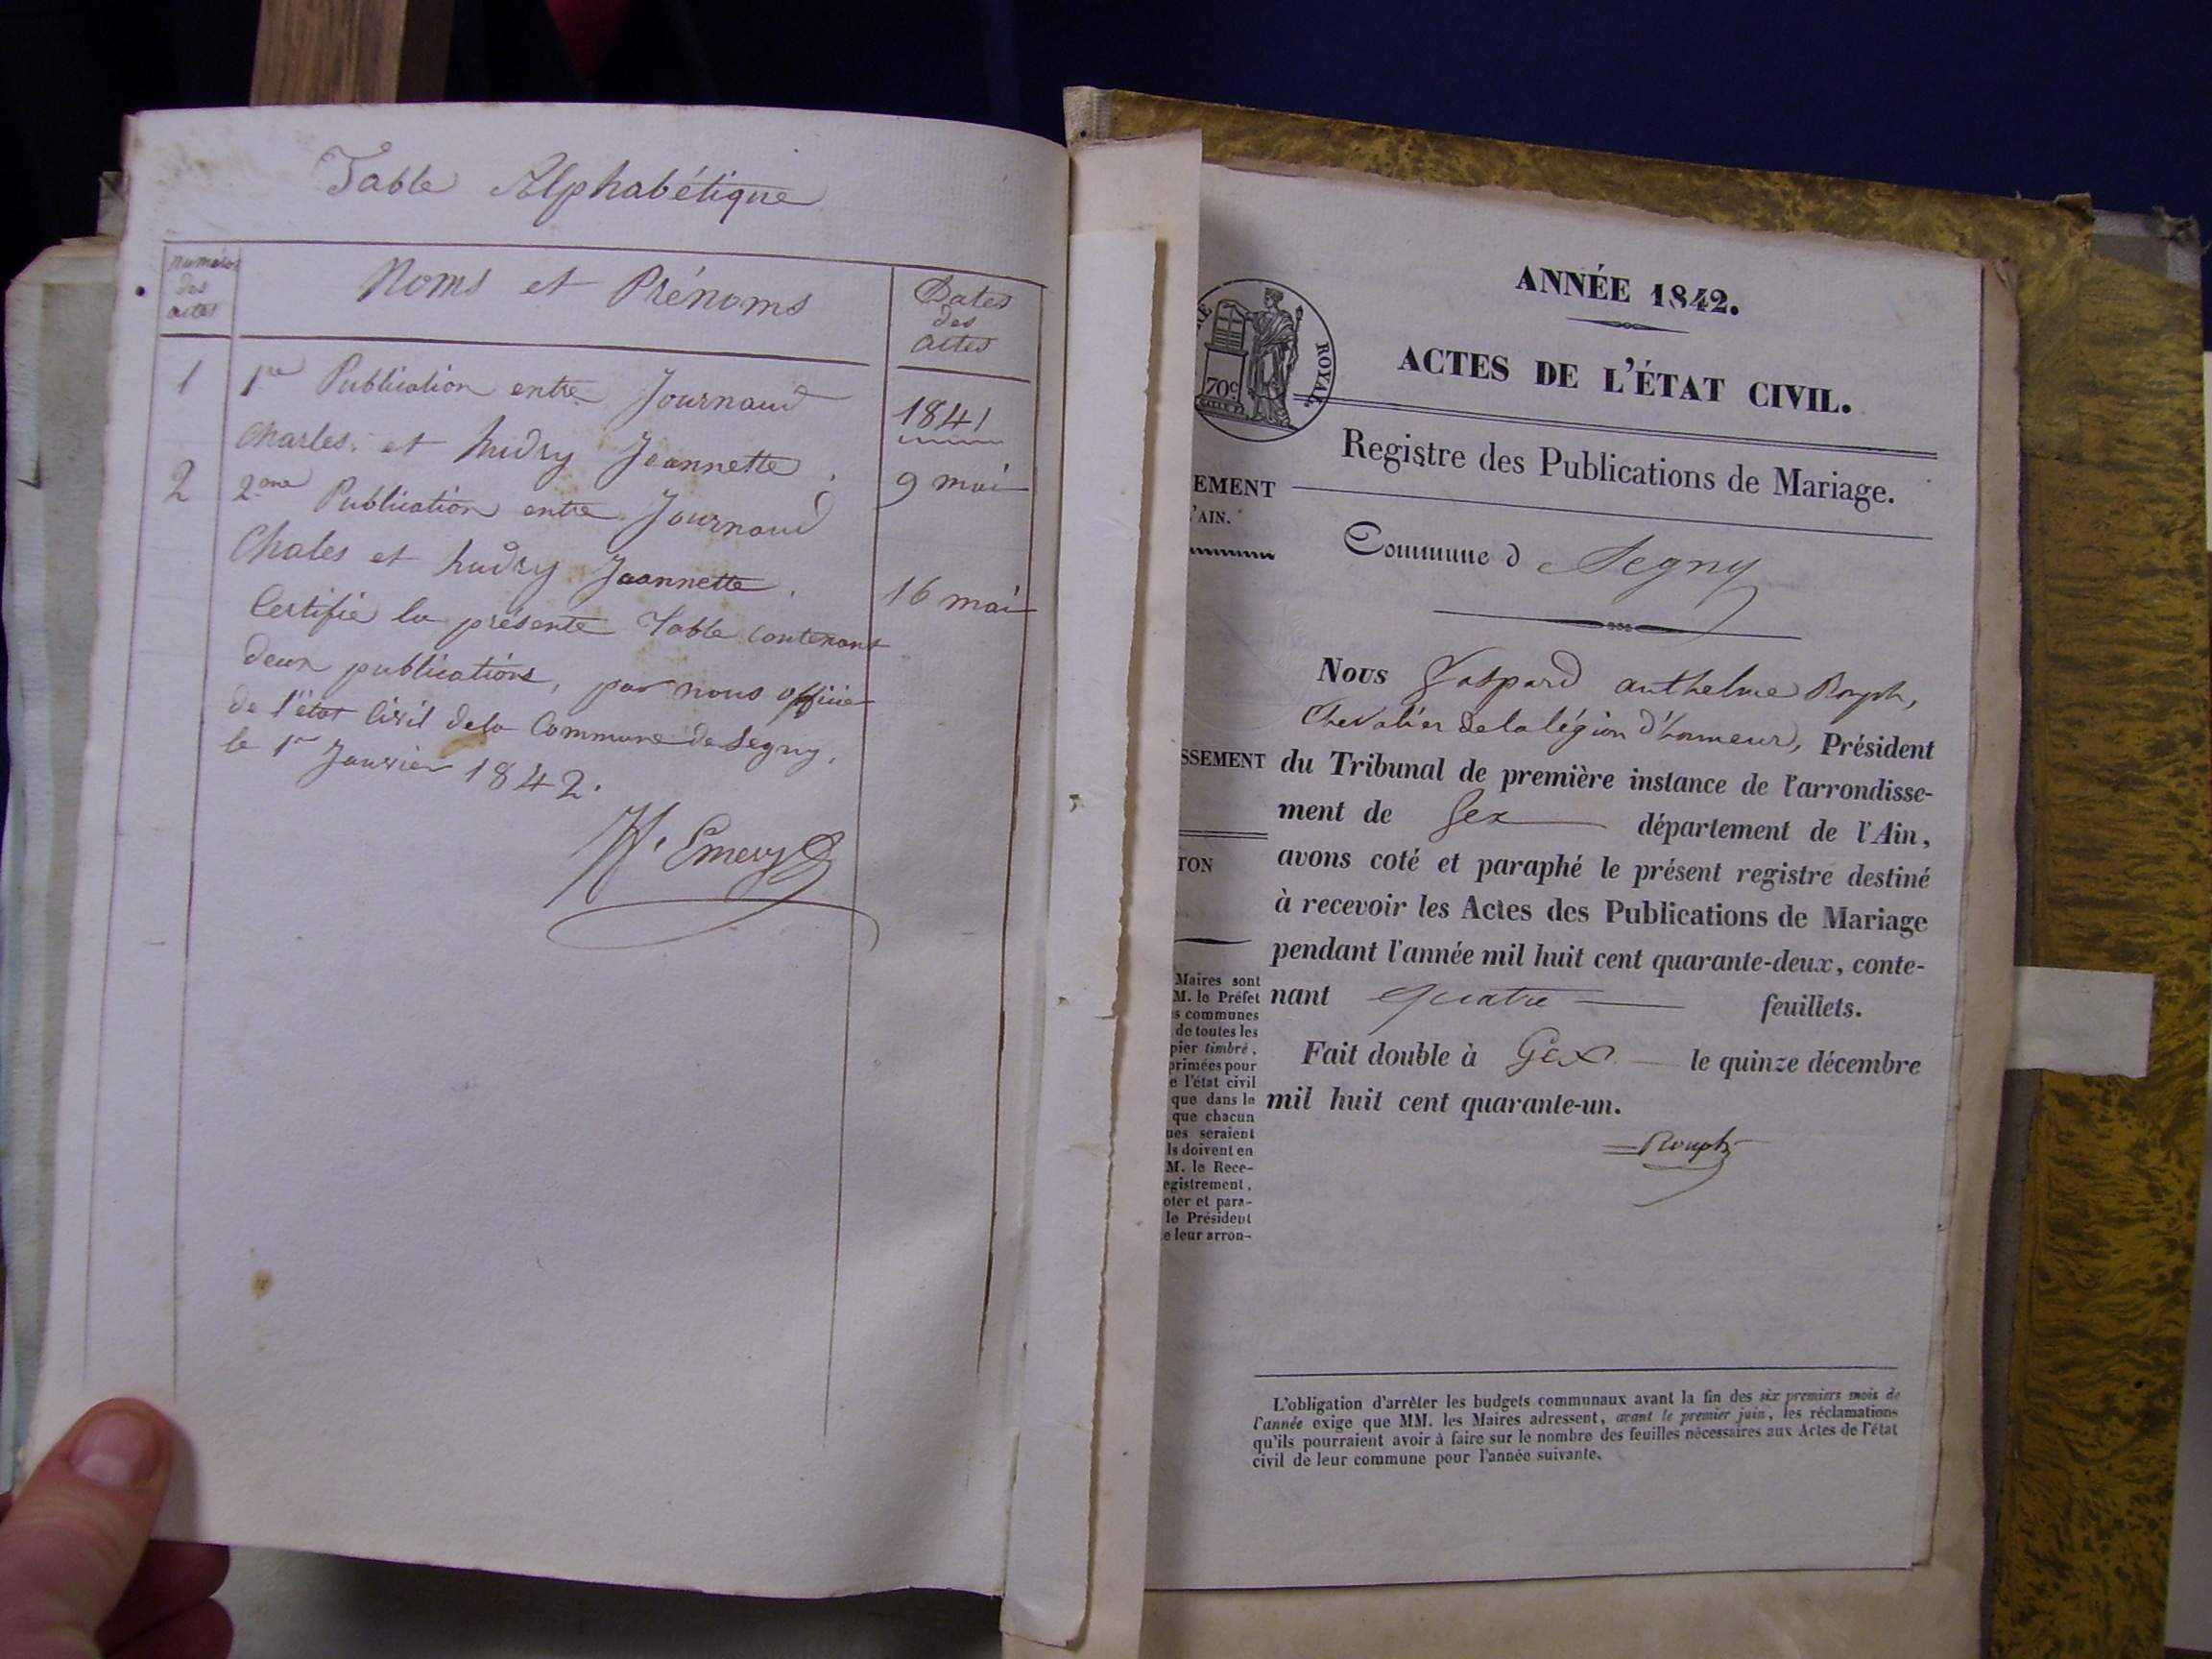 Table Alphabétique
numéros
des
actes
Noms et Prénoms
Dates
des
actes
1
1re Publication entre Journaud
1841
Charles. et hudry Jeannette.
9 mai
2
2me Publication entre Journaud
Chales et hudry Jaannette.
16 mai
Certifié la présente Table contenant
deux publications, par nous officier
de l'état Civil de la Commune de Segny,
le 1er Janvier 1842.
Emery
ANNÉE 1842.
ACTES DE L'ÉTAT CIVIL.
ROYAL
70c
Registre des Publications de Mariage.
EMENT
'AIN.
Commune d Segny
Nous Gaspard anthelme Rouph,
Chevalier de la légion d'honneur, Président
SSEMENT
du Tribunal de première instance de l'arrondisse-
ment de Gex département de l'Ain,
TON
avons coté et paraphé le présent registre destiné
à recevoir les Actes des Publications de Mariage
pendant l'année mil huit cent quarante-deux, conte-
nant quatre feuillets.
Fait double à Gex le quinze décembre
mil huit cent quarante-un.
Rouph
Maires sont
M. le Préfet
s communes
de toutes les
pier timbré,
primées pour
e l'état civil
que dans le
que chacun
nes seraient
ls doivent en
M. le Rece-
egistrement,
oter et para-
le Président
e leur arron-
L'obligation d'arrêter les budgets communaux avant la fin des six premiers mois de
l'année exige que MM. les Maires adressent, avant le premier juin, les réclamations
qu'ils pourraient avoir à faire sur le nombre des feuilles nécessaires aux Actes de l'état
civil de leur commune pour l'année suivante.